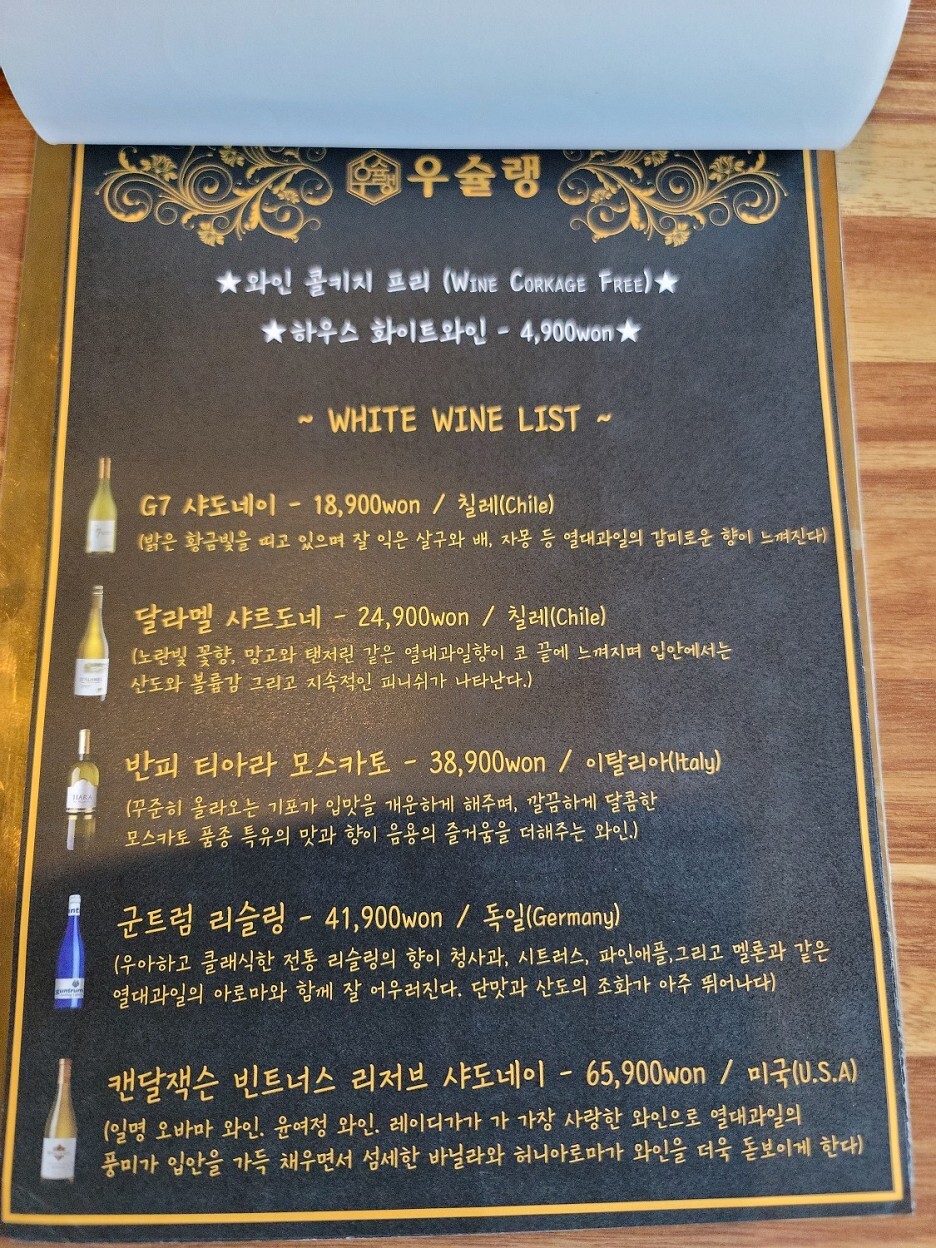 우슐랭 우슐랭
★와인 콜키지 프리 (WINE CORKAGE FREE)★
★하우스 화이트와인 - 4,900won★
~ WHITE WINE LIST ~
G7 샤도네이 - 18,900won / 칠레(Chile)
(밝은 황금빛을 띠고 있으며 잘 익은 살구와 배, 자몽 등 열대과일의 감미로운 향이 느껴진다)
달라멜 샤르도네 - 24,900won / 칠레(Chile)
(노란빛 꽃향, 망고와 탠저린 같은 열대과일향이 코 끝에 느껴지며 입안에서는
산도와 볼륨감 그리고 지속적인 피니쉬가 나타난다.)
반피 티아라 모스카토 - 38,900won / 이탈리아(Italy)
TIARA
(꾸준히 올라오는 기포가 입맛을 개운하게 해주며, 깔끔하게 달콤한
모스카토 품종 특유의 맛과 향이 음용의 즐거움을 더해주는 와인.)
군트럼 리슬링 - 41,900won / 독일(Germany)
(우아하고 클래식한 전통 리슬링의 향이 청사과, 시트러스, 파인애플,그리고 멜론과 같은
열대과일의 아로마와 함께 잘 어우러진다. 단맛과 산도의 조화가 아주 뛰어나다)
guntrum
캔달잭슨 빈트너스 리저브 샤도네이 - 65,900won / 미국(U.S.A)
(일명 오바마 와인. 윤여정 와인. 레이디가가 가 가장 사랑한 와인으로 열대과일의
풍미가 입안을 가득 채우면서 섬세한 바닐라와 허니아로마가 와인을 더욱 돋보이게 한다)